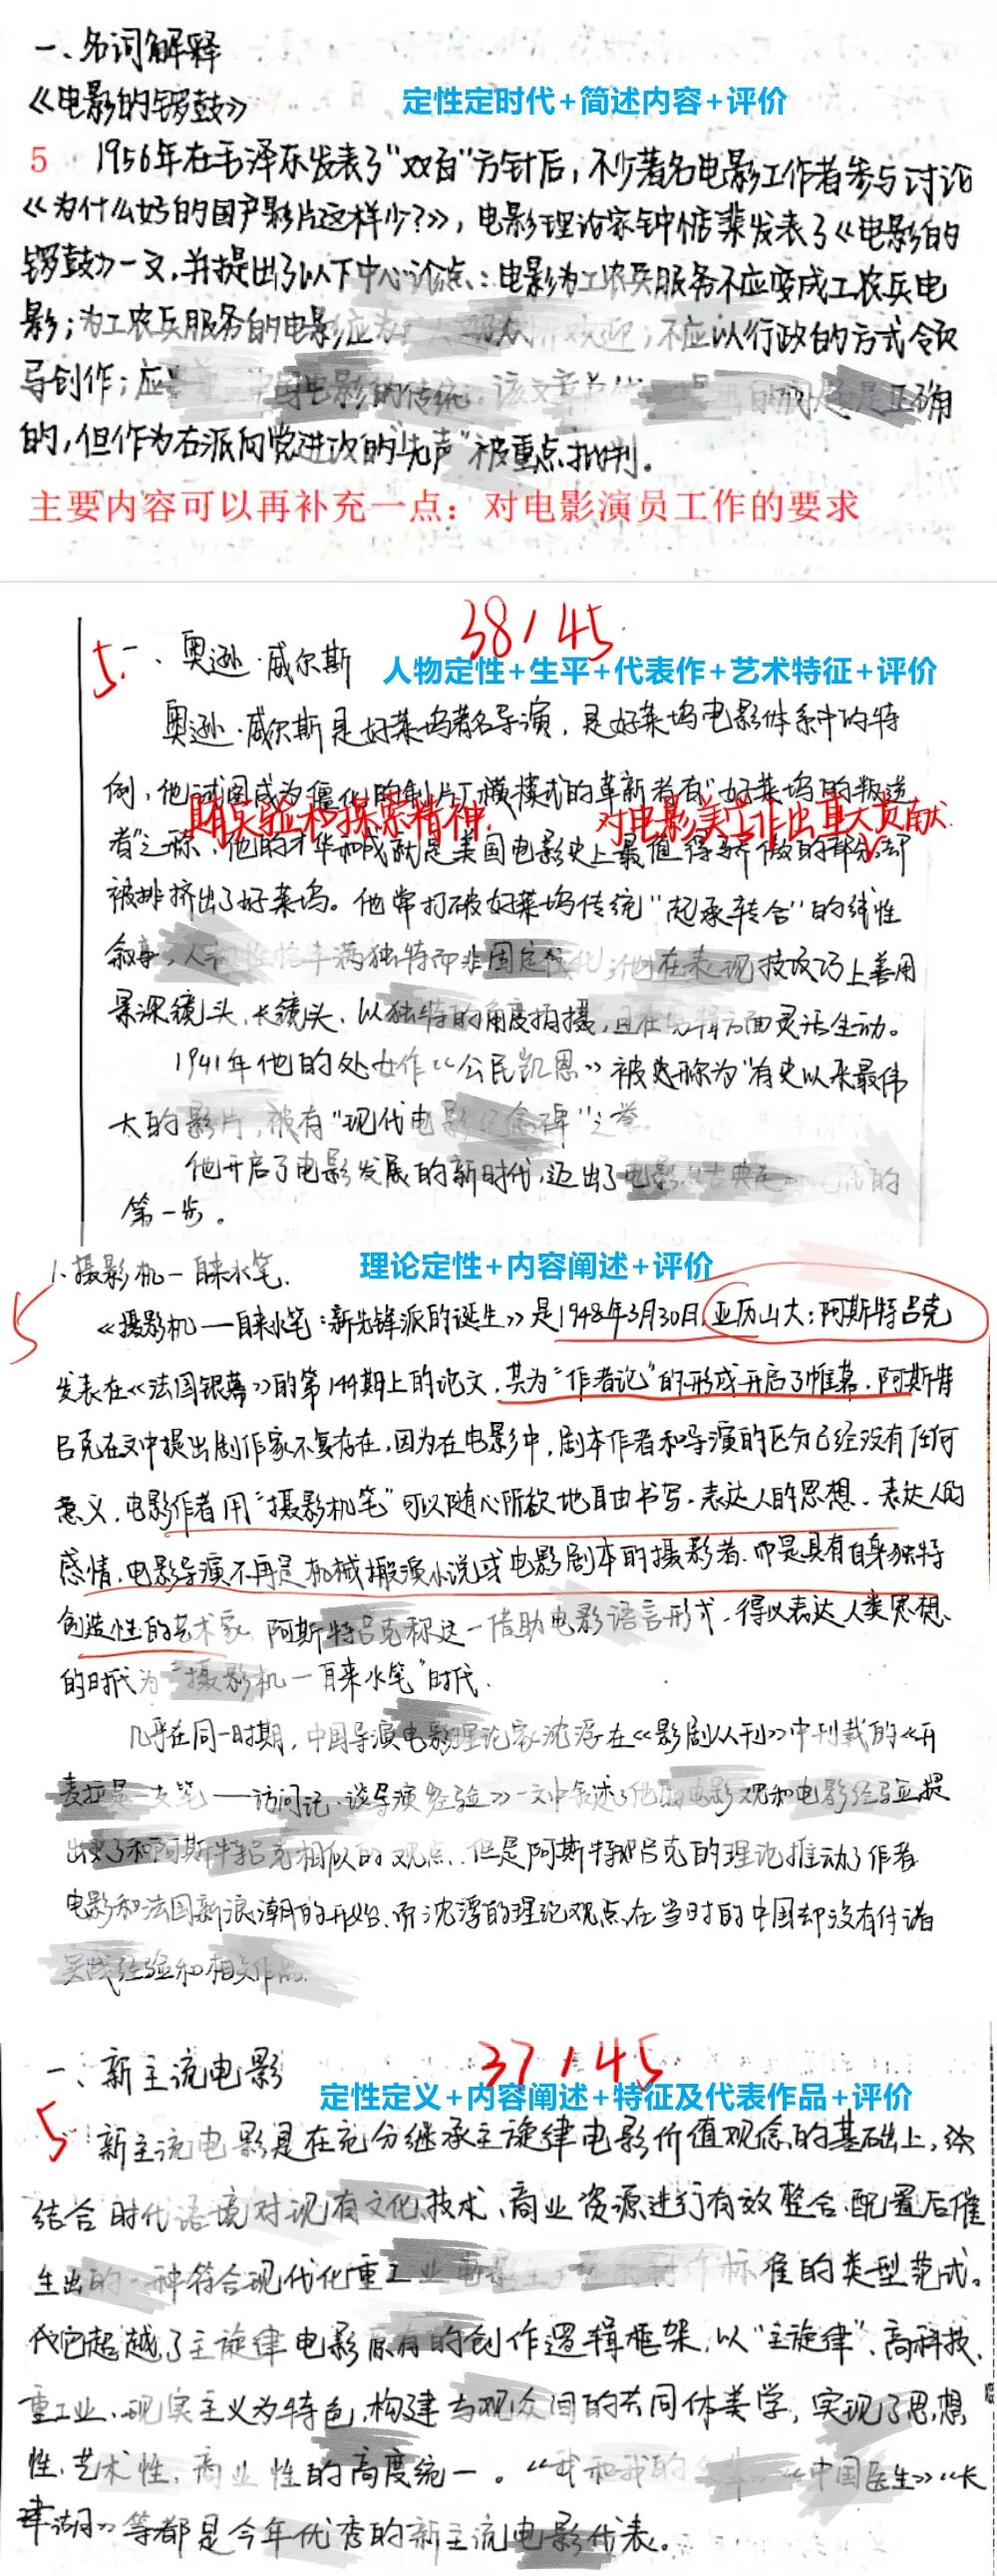 一、名词解释
《电影的锣鼓》
定性定时代+简述内容+评价
5
1956年在毛泽东发表了"双百"方针后，不少著名电影工作者参与讨论
《为什么好的国产影片这样少?》，电影理论家钟惦棐发表了《电影的
锣鼓》一文，并提出了以下中心论点：电影为工农兵服务不应变成工农兵电
影；为工农兵服务的电影应为 欢迎；不应以行政的方式领
导创作；应 电影的传统。该文章 的问题是正确
的，但作为右派向党进攻的"先声"被重点批判。
主要内容可以再补充一点：对电影演员工作的要求
38/45
5.
一、奥逊·威尔斯
人物定性+生平+代表作+艺术特征+评价
奥逊·威尔斯是好莱坞著名导演，是好莱坞电影体系中的特
例，他试图成为僵化的制片厂模式的革新者有"好莱坞的叛逆
具有实验和探索精神. 对电影美学作出重大贡献.
者"之称，他的才华和成就是美国电影史上最值得骄傲的部分，却
被排挤出了好莱坞。他常打破好莱坞传统"起承转合"的线性
叙事，人物性格丰满独特而非固定 他在表现技巧上善用
景深镜头、长镜头、以独特的角度拍摄，且在剪辑方面灵活生动。
1941年他的处女作《公民凯恩》被称为"有史以来最伟
大的影片，被有"现代电影纪念碑"之誉。
他开启了电影发展的新时代，迈出了电影 古典 的
第一步。
1.摄影机—自来水笔.
理论定性+内容阐述+评价
5
《摄影机—自来水笔：新先锋派的诞生》是1948年3月30日亚历山大：阿斯特吕克
发表在《法国银幕》的第144期上的论文，其为"作者论"的形成开启了帷幕。阿斯特
吕克在文中提出剧作家不复存在，因为在电影中，剧本作者和导演的区分已经没有任何
意义，电影作者用"摄影机笔"可以随心所欲地自由书写，表达人的思想。表达人的
感情，电影导演不再是机械搬演小说或电影剧本的摄影者，而是具有自身独特
创造性的艺术家。阿斯特吕克称这一借助电影语言形式，得以表达人类思想
的时代为"摄影机—自来水笔"时代.
几乎在同一时期，中国导演电影理论家沈浮在《影剧丛刊》中刊载的《开
麦拉是一支笔——访问记、谈导演经验》一文中叙述了他的电影观和电影经验提
出了和阿斯特吕克相似的观点，但是阿斯特吕克的理论推动了作者
电影和法国新浪潮的开始，而沈浮的理论观点在当时的中国却没有付诸
实践经验和相关作品.
37/45
一、新主流电影
定性定义+内容阐述+特征及代表作品+评价
5
新主流电影是在充分继承主旋律电影价值观念的基础上，
结合时代语境对现有文化、技术、商业资源进行有效整合、配置后催
生出的一种符合现代化重工业电影 标准的类型范式。
它超越了主旋律电影原有的创作逻辑框架，以"主旋律"、高科技、
重工业、现实主义为特色，构建与观众间的共同体美学，实现了思想
性、艺术性、商业性的高度统一。《我和我的 《中国医生》《长
津湖》等都是今年优秀的新主流电影代表。